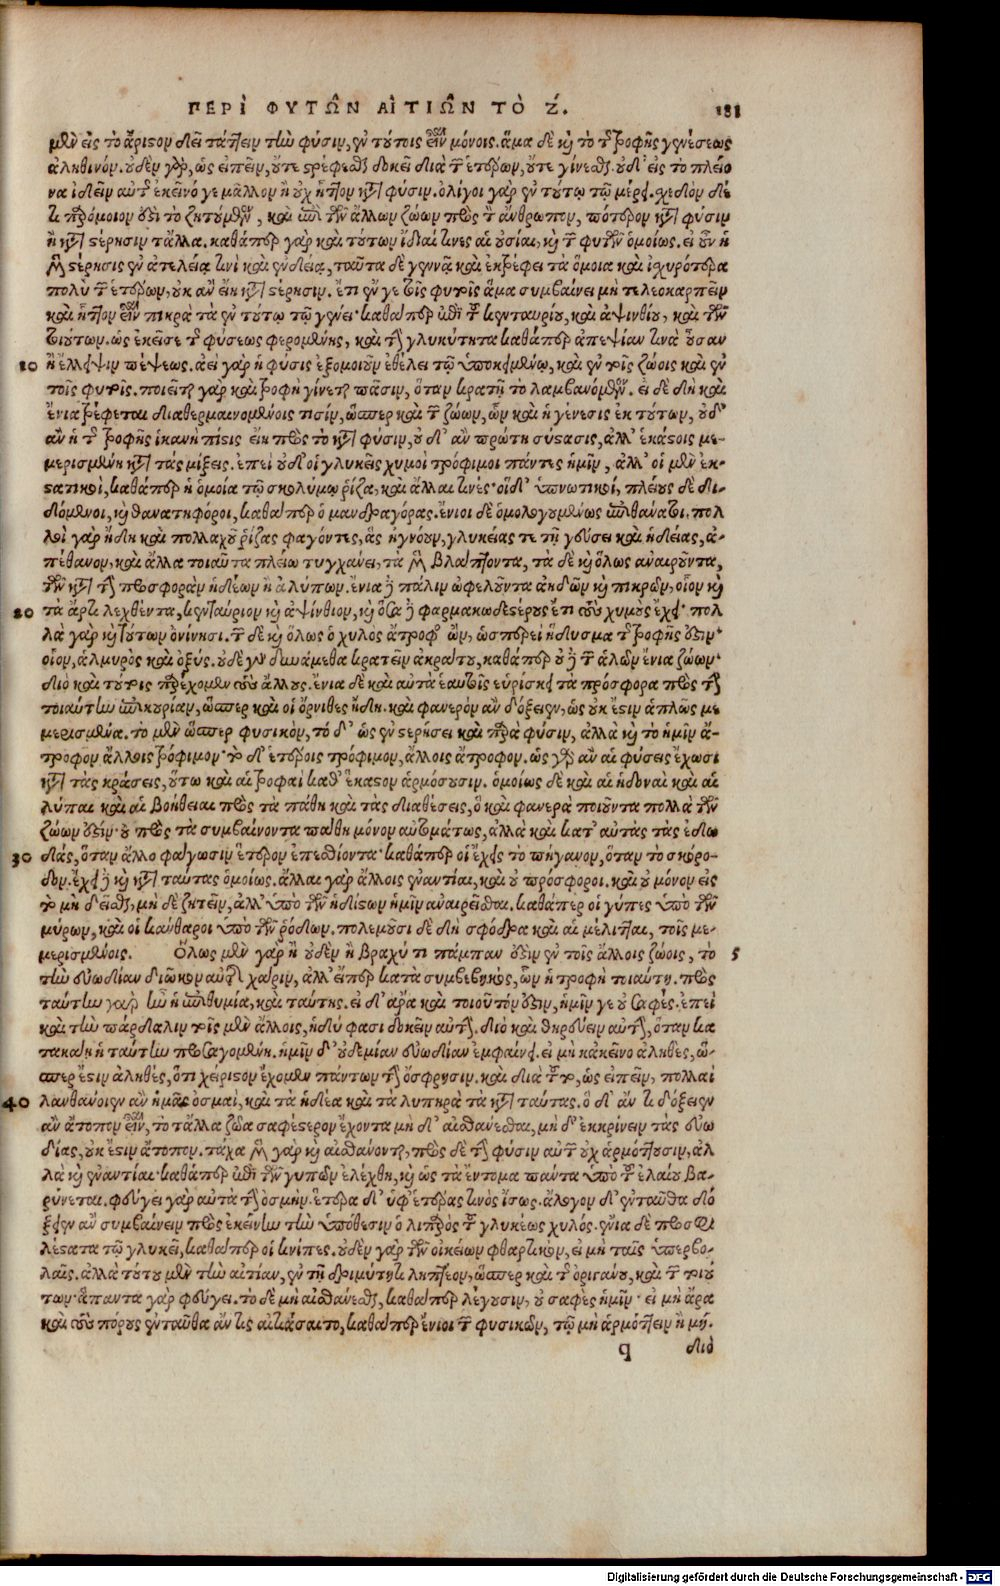 ΠΕΡῚ ΦΥΤΩ͂Ν ΑἸΤΙΩ͂Ν ΤῸ Ζ́. 181
μὲν εἰς τὸ ἄριστον δεῖ τάττειν τὴν φύσιν, ἐν τούτοις εἶναι μόνοις. ἅμα δὲ καὶ τὸ τῆς τροφῆς γενέσεως
ἀληθινόν. οὐδὲν γὰρ, ὡς εἰπεῖν, οὔτε τρέφεσθαι δοκεῖ διὰ τῶν ἑτέρων, οὔτε γίνεσθαι. οὐδ' εἰς τὸ πλεῖο
να ἰδεῖν αὐτὸ ἐκεῖνό γε μᾶλλον ἢ οὐχ ἧττον κατὰ φύσιν. ὀλίγοι γὰρ ἐν τούτῳ τῷ μέρει. σχεδὸν δέ
τι παρόμοιον ἐστὶ τὸ ζητούμενον, καὶ ἐπὶ τῶν ἄλλων ζώων πρὸς τὸν ἄνθρωπον, πότερον κατὰ φύσιν
ἢ κατὰ στέρησιν τἄλλα. καθάπερ γὰρ καὶ τούτων ἴδιαί τινες αἱ οὐσίαι, καὶ τῶν φυτῶν ὁμοίως. εἰ οὖν ἡ
μὲν στέρησις ἐν ἀτελείᾳ τινὶ καὶ ἐνδείᾳ, ταῦτα δὲ γεννᾷ καὶ ἐκτρέφει τὰ ὅμοια καὶ ἰσχυρότερα
πολὺ τῶν ἑτέρων, οὐκ ἂν εἴη κατὰ στέρησιν. ἔτι ἐν γε τοῖς φυτοῖς ἅμα συμβαίνει μὴ τελεοκαρπεῖν
καὶ ἧττον εἶναι πικρὰ τὰ ἐν τούτῳ τῷ γένει· καθάπερ ἐπὶ τοῦ κενταυρίου, καὶ ἀψινθίου, καὶ τῶν
τοιούτων. ὡς ἐκεῖσε τῆς φύσεως φερομένης, καὶ τὴν γλυκύτητα καθάπερ ἀπεψίαν τινὰ οὖσαν
10 ἢ ἔλλειψιν πέψεως. ἀεὶ γὰρ ἡ φύσις ἐξομοιοῦν ἐθέλει τῷ ὑποκειμένῳ, καὶ ἐν τοῖς ζώοις καὶ ἐν
τοῖς φυτοῖς. ποιεῖται γὰρ καὶ τροφὴ γίνεται πᾶσιν, ὅταν κρατῇ τὸ λαμβανόμενον. εἰ δὲ δὴ καὶ
ἔνια τρέφεται διαθερμαινομένοις τισίν, ὥσπερ καὶ τῶν ζώων, ὧν καὶ ἡ γένεσις ἐκ τούτων, οὐδ'
ἂν ἡ τῆς τροφῆς ἱκανὴ πίστις εἴη πρὸς τὸ κατὰ φύσιν, οὐδ' ἂν πρώτη σύστασις, ἀλλ' ἑκάστοις με-
μερισμένη κατὰ τὰς μίξεις. ἐπεὶ οὐδ' οἱ γλυκεῖς χυμοὶ τρόφιμοι πάντες ἡμῖν, ἀλλ' οἱ μὲν ἐκ-
στατικοὶ, καθάπερ ἡ ὁμοία τῷ σκολύμῳ ῥίζα, καὶ ἄλλαι τινές· οἱ δ' ὑπνωτικοὶ, πλείους δὲ δι-
δόμενοι, καὶ θανατηφόροι, καθάπερ ὁ μανδραγόρας. ἔνιοι δὲ ὁμολογουμένως ἐπιθάνατοι. πολ
λοὶ γὰρ ἤδη καὶ πολλαχοῦ ῥίζας φαγόντες, ἃς ἠγνόουν, γλυκείας τε τῇ γεύσει καὶ ἡδείας, ἀ-
πέθανον, καὶ ἄλλα τοιαῦτα πλείω τυγχάνει, τὰ μὲν βλάπτοντα, τὰ δὲ καὶ ὅλως ἀναιροῦντα,
τῶν κατὰ τὴν προσφορὰν ἡδέων ἢ ἀλύπων. ἔνια δὲ πάλιν ὠφελοῦντα ἀηδῶν καὶ πικρῶν, οἷον καὶ
20 τὰ ἄρτι λεχθέντα, κενταύριον καὶ ἀψίνθιον, καὶ ὅσα δὴ φαρμακωδεστέρους ἔτι τοὺς χυμοὺς ἔχει· πολ
λὰ γὰρ καὶ τούτων ὀνίνησι. τῶν δὲ καὶ ὅλως ὁ χυλὸς ἄτροφος ὢν, ὡσπερεὶ ἥδυσμα τῆς τροφῆς ἐστιν·
οἷον, ἁλμυρὸς καὶ ὀξύς. οὐδὲ γὰρ δυνάμεθα κρατεῖν ἀκράτου, καθάπερ οὐδὲ τῶν ἁλῶν ἔνια ζώων·
διὸ καὶ τούτοις παρέχομεν τοὺς ἄλλους. ἔνια δὲ καὶ αὐτὰ ἑαυτοῖς εὑρίσκει τὰ πρόσφορα πρὸς τὴν
τοιαύτην ἐπικουρίαν, ὥσπερ καὶ οἱ ὄρνιθες ἤδη. καὶ φανερὸν ἂν δόξειεν, ὡς οὐκ ἔστιν ἁπλῶς με
μερισμένα. τὸ μὲν ὥσπερ φυσικὸν, τὸ δ' ὡς ἐν στερήσει καὶ παρὰ φύσιν, ἀλλὰ καὶ τὸ ἡμῖν ἄ-
τροφον ἄλλοις τρόφιμον· τὸ δ' ἑτέροις τρόφιμον, ἄλλοις ἄτροφον. ὡς γὰρ ἂν αἱ φύσεις ἔχωσι
κατὰ τὰς κράσεις, οὕτω καὶ αἱ τροφαὶ καθ' ἕκαστον ἁρμόσουσιν. ὁμοίως δὲ καὶ αἱ ἡδοναὶ καὶ αἱ
λύπαι καὶ αἱ βοήθειαι πρὸς τὰ πάθη καὶ τὰς διαθέσεις, ὃ καὶ φανερὰ ποιοῦντα πολλὰ τῶν
ζώων ἐστίν· οὐ πρὸς τὰ συμβαίνοντα πάθη μόνον αὐτομάτως, ἀλλὰ καὶ κατ' αὐτὰς τὰς ἐδω
30 δὰς, ὅταν ἄλλο φάγωσιν ἕτερον ἐπεσθίοντα· καθάπερ οἱ ἔχεις τὸ πήγανον, ὅταν τὸ σκόρο-
δον. ἔχει δὲ καὶ κατὰ ταύτας ὁμοίως. ἄλλαι γὰρ ἄλλοις ἐναντίαι, καὶ οὐ πρόσφοροι. καὶ οὐ μόνον εἰς
τὸ μὴ δεῖσθαι, μηδὲ ζητεῖν, ἀλλ' ὑπὸ τῶν ἡδίστων ἡμῖν ἀναιρεῖσθαι. καθάπερ οἱ γύπες ὑπὸ τῶν
μύρων, καὶ οἱ κάνθαροι ὑπὸ τῶν ῥόδων. πολεμοῦσι δὲ δὴ σφόδρα καὶ αἱ μέλιτται, τοῖς με-
μερισμένοις. Ὅλως μὲν γὰρ ἢ οὐδὲν ἢ βραχύ τι πάμπαν ἐστὶν ἐν τοῖς ἄλλοις ζώοις, τὸ 5
τὴν εὐωδίαν διῶκον αὐτῆς χάριν, ἀλλ' εἴπερ κατὰ συμβεβηκὸς, ὧν ἡ τροφὴ τοιαύτη. πρὸς
ταύτην γὰρ ἦν ἡ ἐπιθυμία, καὶ ταύτης. εἰ δ' ἄρα καὶ τοιοῦτόν ἐστιν, ἡμῖν γε οὐ σαφές. ἐπεὶ
καὶ τὴν πάρδαλιν τοῖς μὲν ἄλλοις, ἡδύ φασι δοκεῖν αὐτὴν. διὸ καὶ θηρεύειν αὐτὴν, ὅταν κα
τακαίῃ ταύτην προσαγομένην. ἡμῖν δ' οὐδεμίαν εὐωδίαν ἐμφαίνει. εἰ μὴ κἀκεῖνο ἀληθὲς, ὥ-
σπερ ἐστὶν ἀληθὲς, ὅτι χείριστον ἔχομεν πάντων τὴν ὄσφρησιν. καὶ διὰ τοῦτο, ὡς εἰπεῖν, πολλαὶ
40 λανθάνοιεν ἂν ἡμᾶς ὀσμαὶ, καὶ τὰ ἡδέα καὶ τὰ λυπηρὰ τὰ κατὰ ταύτας. ὃ δ' ἄν τι δόξειεν
ἂν ἄτοπον εἶναι, τὸ τἄλλα ζῶα σαφέστερον ἔχοντα μὴ δ' αἰσθάνεσθαι, μὴ δ' ἐκκρίνειν τὰς εὐω
δίας, οὐκ ἔστιν ἄτοπον. τάχα μὲν γὰρ καὶ αἰσθάνονται, πρὸς δὲ τὴν φύσιν αὐτῶν οὐχ ἁρμόττουσιν, ἀλ
λὰ καὶ ἐναντίαι· καθάπερ ἐπὶ τῶν γυπῶν ἐλέχθη, καὶ ὡς τὰ ἔντομα πάντα ὑπὸ τοῦ ἐλαίου βα-
ρύνεται. φεύγει γὰρ αὐτὰ τὴν ὀσμήν. ἕτερα δ' ὑφ' ἑτέρας τινὸς ἴσως. ἄλογον δ' ἐνταῦθα δό
ξειεν ἂν συμβαίνειν πρὸς ἐκείνην τὴν ὑπόθεσιν ὁ λιπαρὸς τοῦ γλυκέως χυλός. ἔνια δὲ πρὸς
λέστατα τῷ γλυκεῖ, καθάπερ οἱ κνίπες. οὐδὲν γὰρ τῶν οἰκείων φθαρτικὸν, εἰ μὴ ταῖς ὑπερβο-
λαῖς. ἀλλὰ τούτου μὲν τὴν αἰτίαν, ἐν τῇ δριμύτητι ληπτέον, ὥσπερ καὶ τῆς ὀριγάνου, καὶ τῶν τοιού
των· ἅπαντα γὰρ φεύγει. τὸ δὲ μὴ αἰσθάνεσθαι, καθάπερ λέγουσιν, οὐ σαφὲς ἡμῖν· εἰ μὴ ἄρα
καὶ τοὺς πόρους ἐνταῦθα ἄν τις αἰτιάσαιτο, καθάπερ ἔνιοι τῶν φυσικῶν, τῷ μὴ ἁρμόττειν ἢ μή.
q διὸ
Digitalisierung gefördert durch die Deutsche Forschungsgemeinschaft - DFG